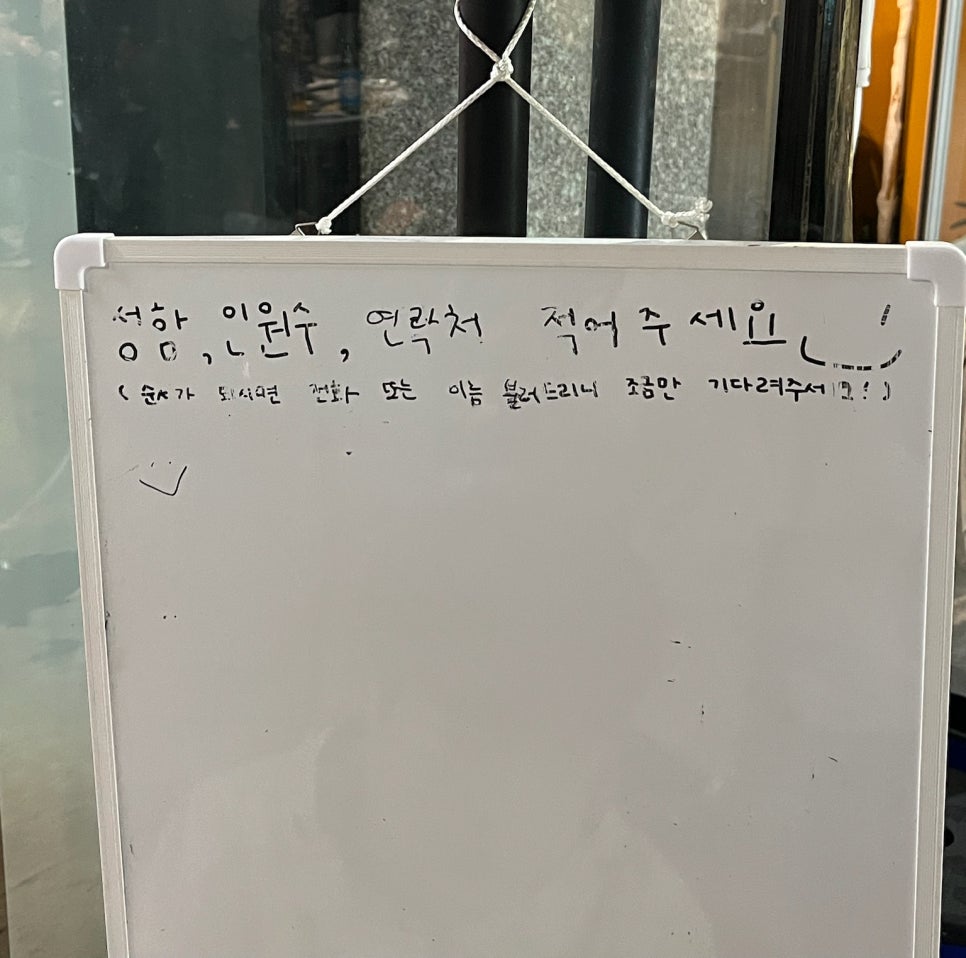 성함, 인원수, 연락처 적어주세요
(순서가 되시면 전화 또는 이름 불러드리니 조금만 기다려주세요!)